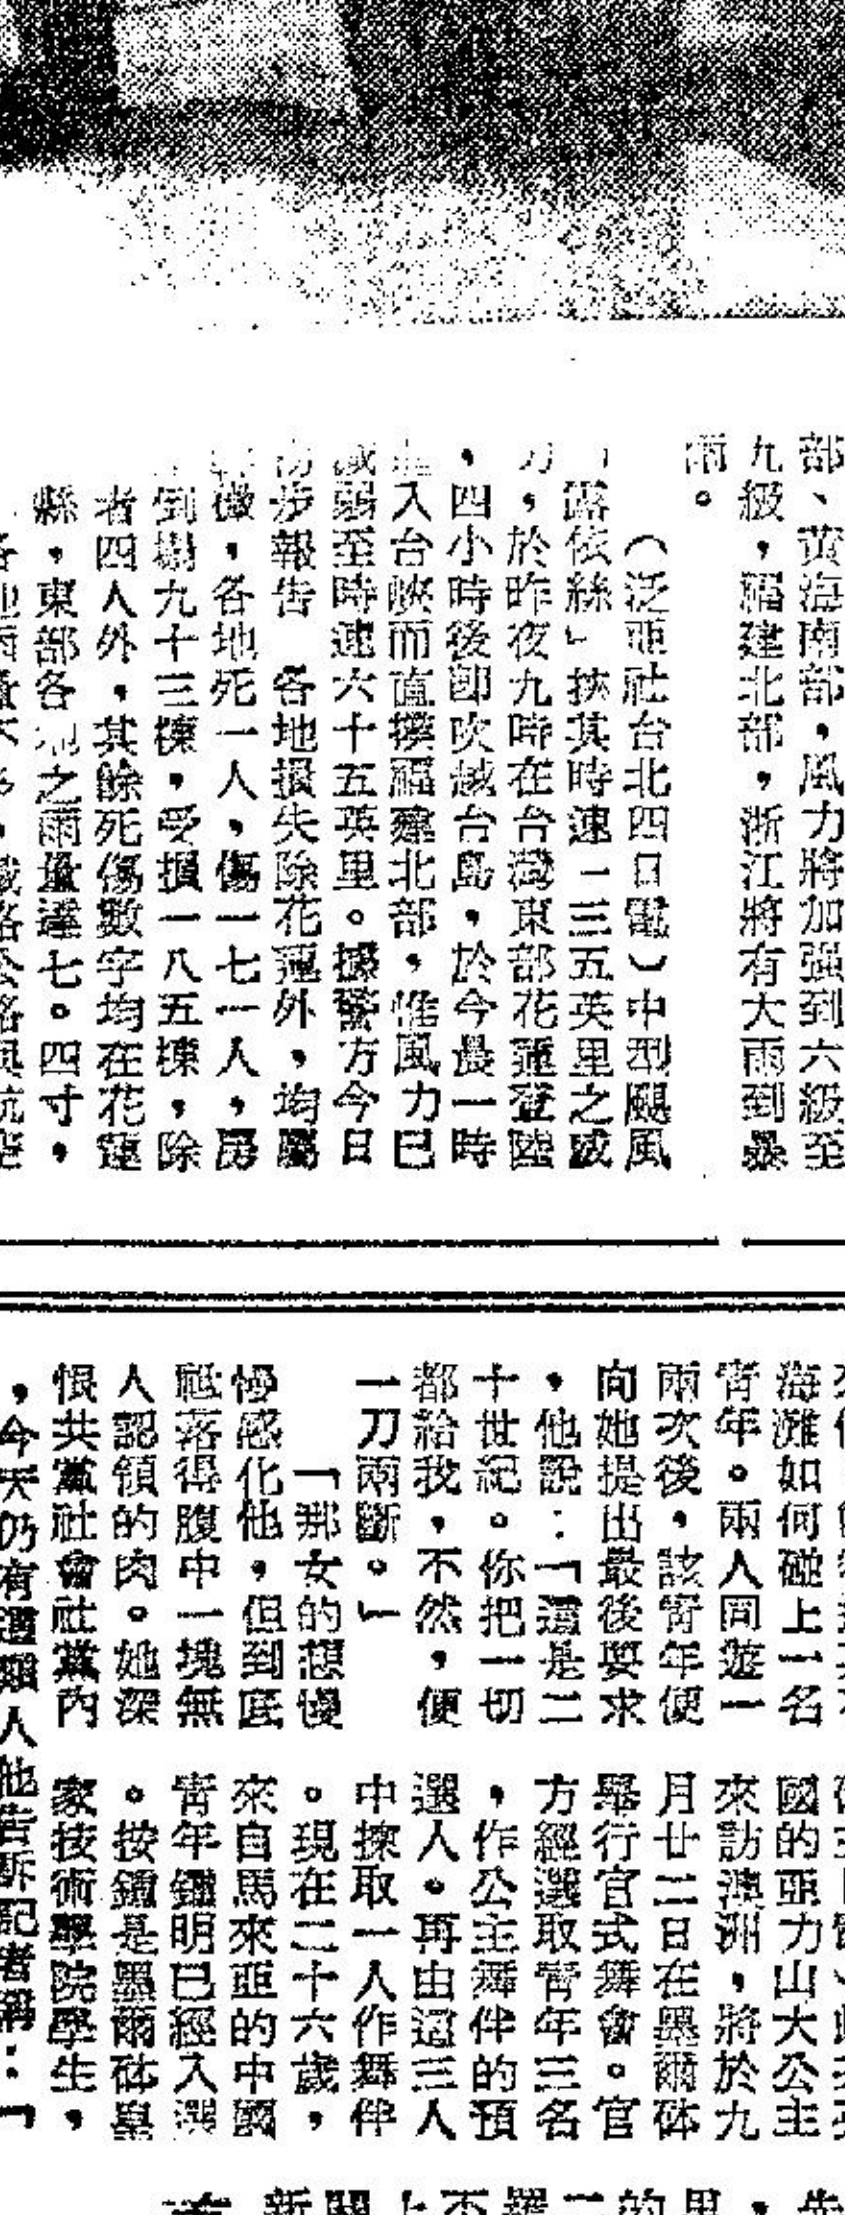 部、黄海南部，風力將加強到六級至
九級，福建北部，浙江將有大雨到暴
雨。
（泛亜社台北四日電）中型颶風
「露依絲」挾其時速一三五英里之威
力，於昨夜九時在台灣東部花蓮登陸
，四小時後即吹越台島，於今晨一時
進入台峽而直撲福建北部，惟風力已
減弱至時速六十五英里。據警方今日
初步報告　各地損失除花蓮外，均屬
微，各地死一人，傷一七一人，房
倒塌九十三棟，受損一八五棟，除
者四人外，其餘死傷數字均在花蓮
縣，東部各地之雨量達七。四寸，
海灘如何碰上一名
青年。兩人同遊一
兩次後，該青年便
向她提出最後要求
，他說：「這是二
十世紀。你把一切
都給我，不然，便
一刀兩斷。」
「那女的想慢
慢感化他，但到底
祗落得腹中一塊無
人認領的肉。她深
恨共黨社會社黨內
，今天仍有這類人他告訴記者稱：「
國的亜力山大公主
來訪澳洲，將於九
月廿二日在墨爾砵
舉行官式舞會。官
方經選取青年三名
，作公主舞伴的預
選人。再由這三人
中揀取一人作舞伴
。現在二十六歲，
來自馬來亜的中國
青年鍾明已經入選
。按鍾是墨爾砵皇
家技術學院學生，